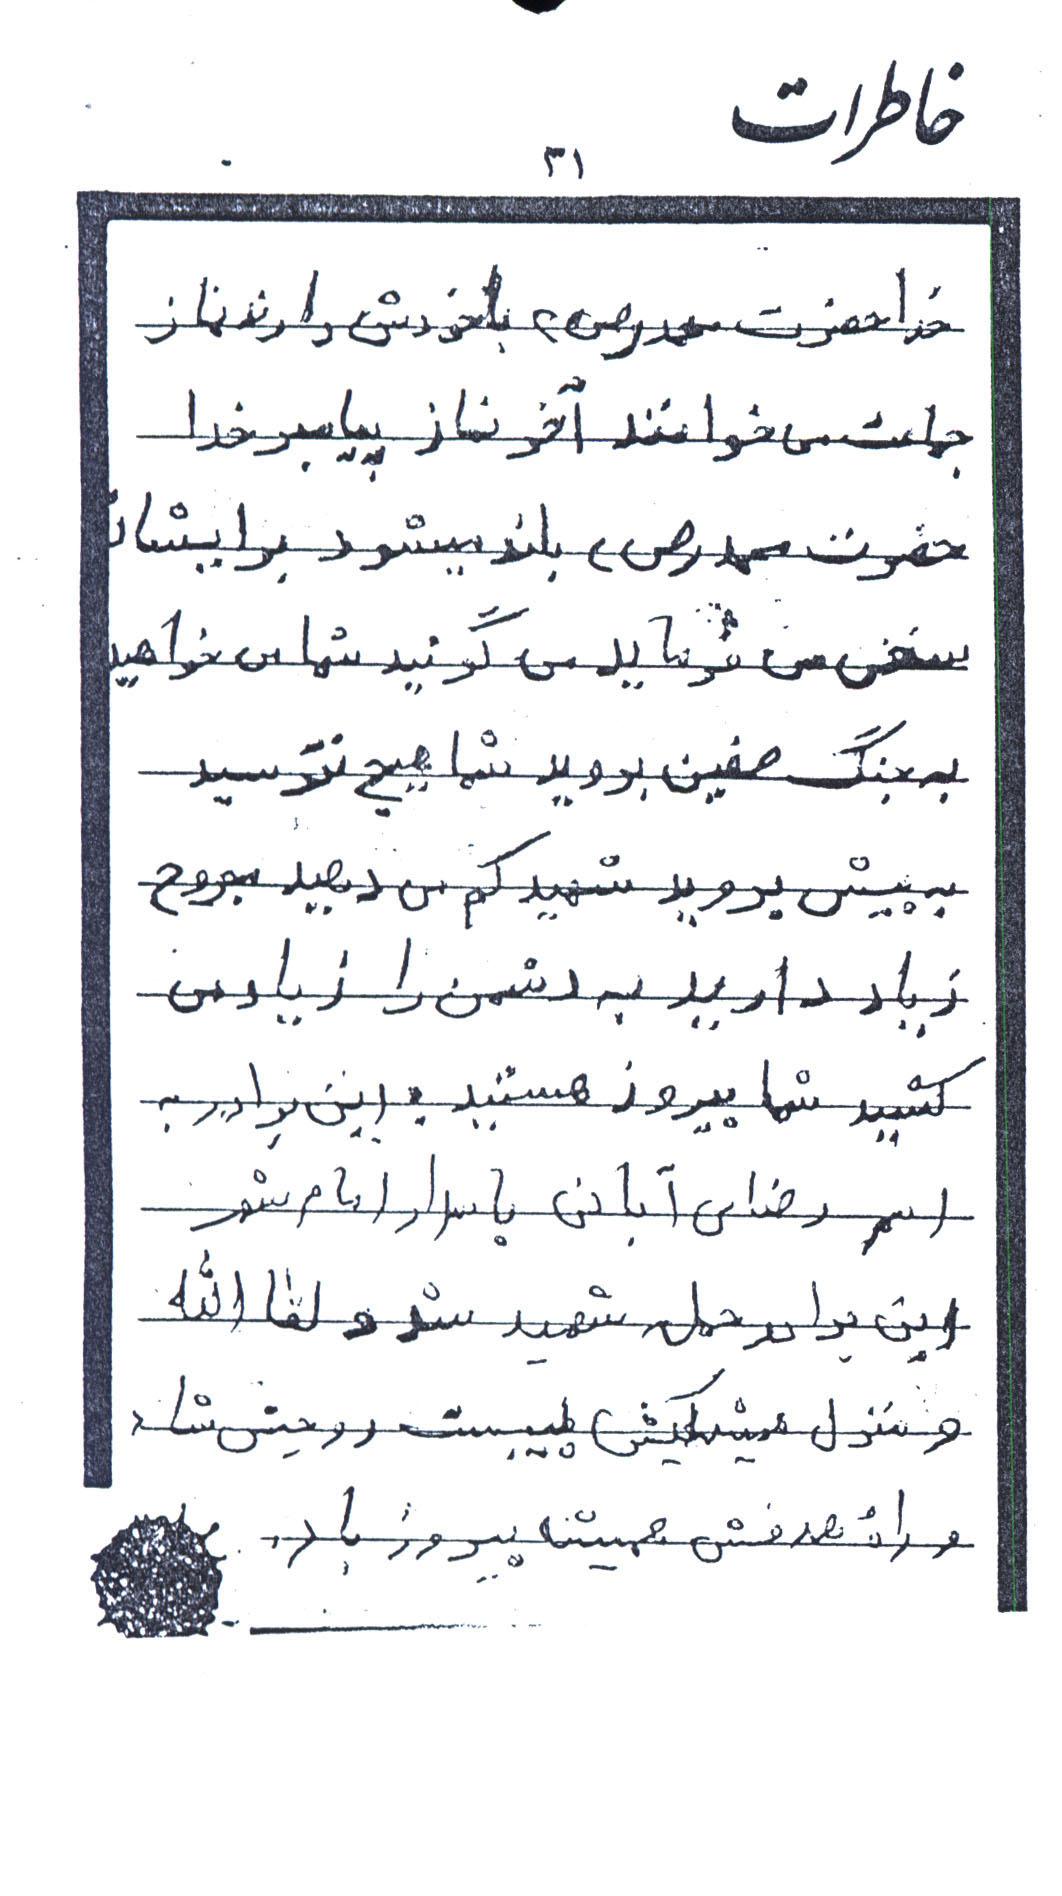 خاطرات
۳۱
خدا حضرت محمد (ص) با خودش دارند نماز
جماعت می خوانند آخر نماز پیامبر خدا
حضرت محمد (ص) بلند میشود برایشان
سخن می فرماید می گوئید شما می خواهید
به جنگ صفین بروید شما هیچ نترسید
به پیش بروید شهید کم می دهید مجروح
زیاد دارید به دشمن را زیاد می
کشید شما پیروز هستید و این برادر به
اسم رضای آبانی پاسدار امام شهر
این برادر حمله شهید شد و لقا الله
و منزل همیشگیش پیبست روحش شاد
و راه هدفش همیشه پیروز باد.